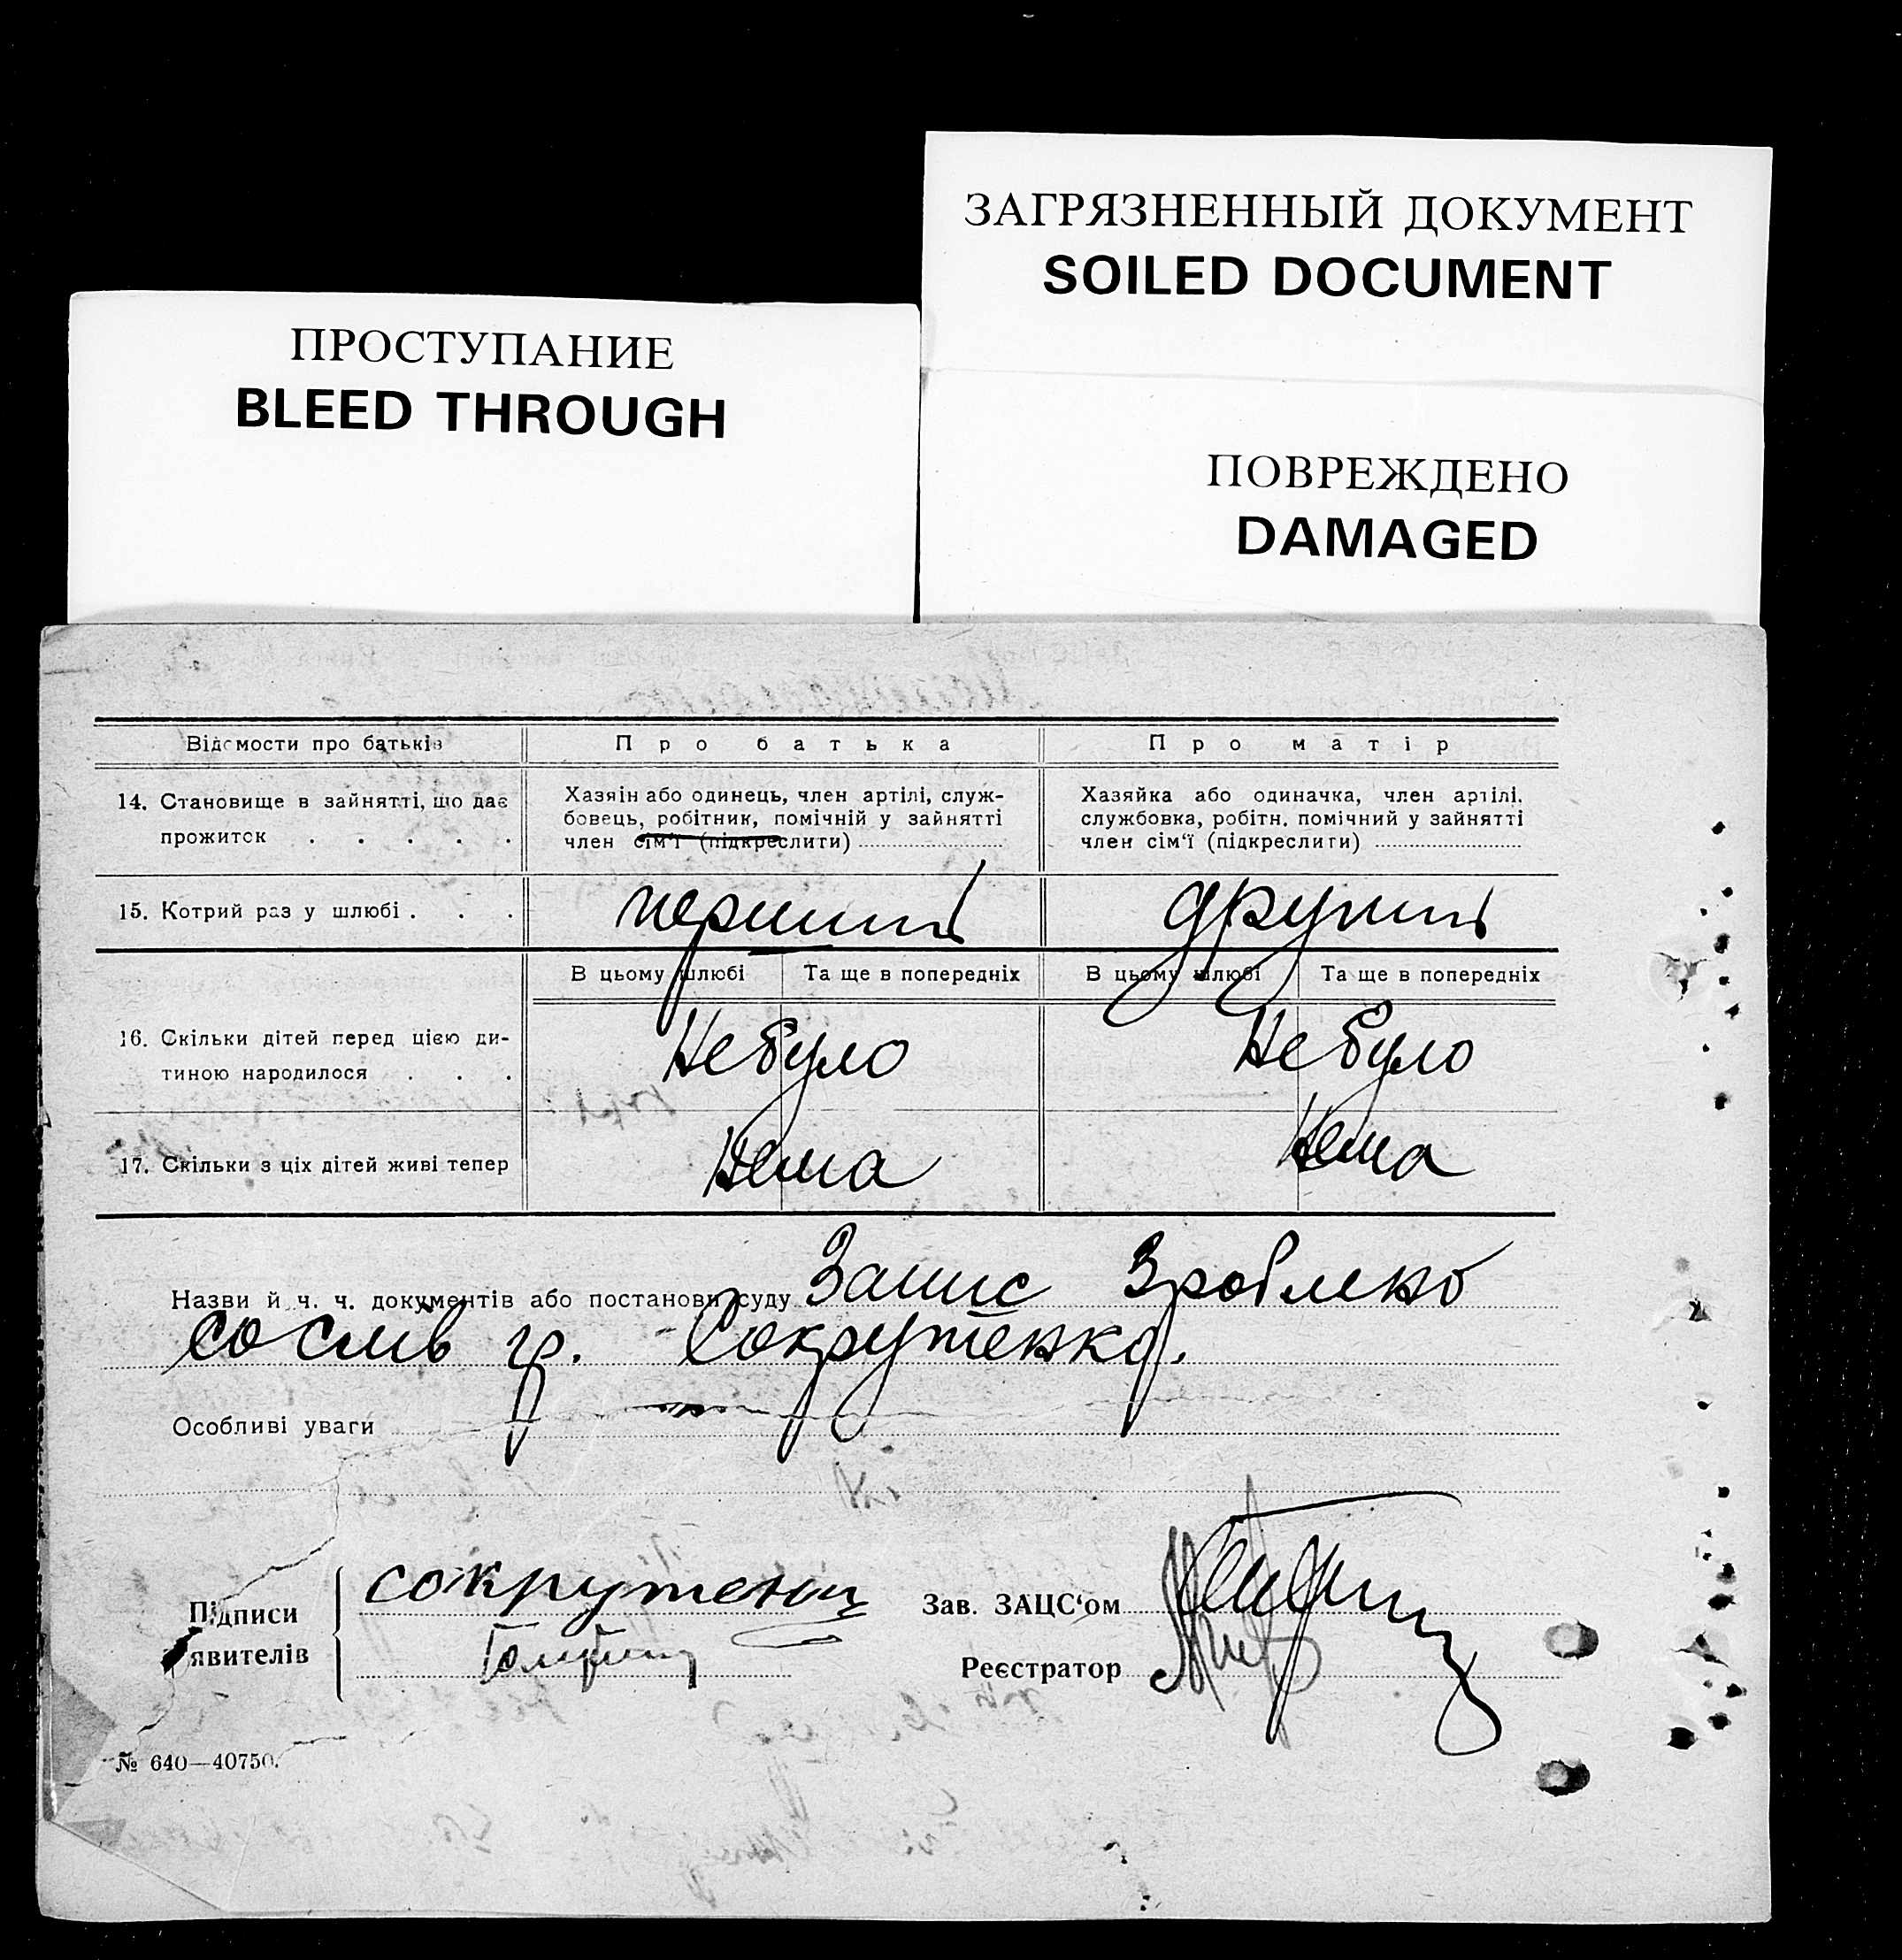 ЗАГРЯЗНЕННЫЙ ДОКУМЕНТ
SOILED DOCUMENT
ПРОСТУПАНИЕ
BLEED THROUGH
ПОВРЕЖДЕНО
DAMAGED
Відомости про батьків
Про батька
Про матір
14. Становище в зайнятті, що дає
прожиток . . . . .
Хазяін або одинець, член артілі, служ-
бовець, робітник, помічній у зайнятті
член сім'ї (підкреслити)
Хазяйка або одиначка, член артілі,
службовка, робітн. помічний у зайнятті
член сім'ї (підкреслити)
15. Котрий раз у шлюбі . . .
перший
другий
В цьому шлюбі
Та ще в попередніх
В цьому шлюбі
Та ще в попередніх
16. Скільки дітей перед цією ди-
тиною народилося . . .
Не було
Не було
17. Скільки з ціх дітей живі тепер
Нема
Нема
Назви й ч. ч. документів або постанови суду Запис зроблено
со слів гр. Сокрутенко.
Особливі уваги
Підписи
явителів
сокрутенко
Зав. ЗАЦС'ом
Реєстратор
№ 640—40750.